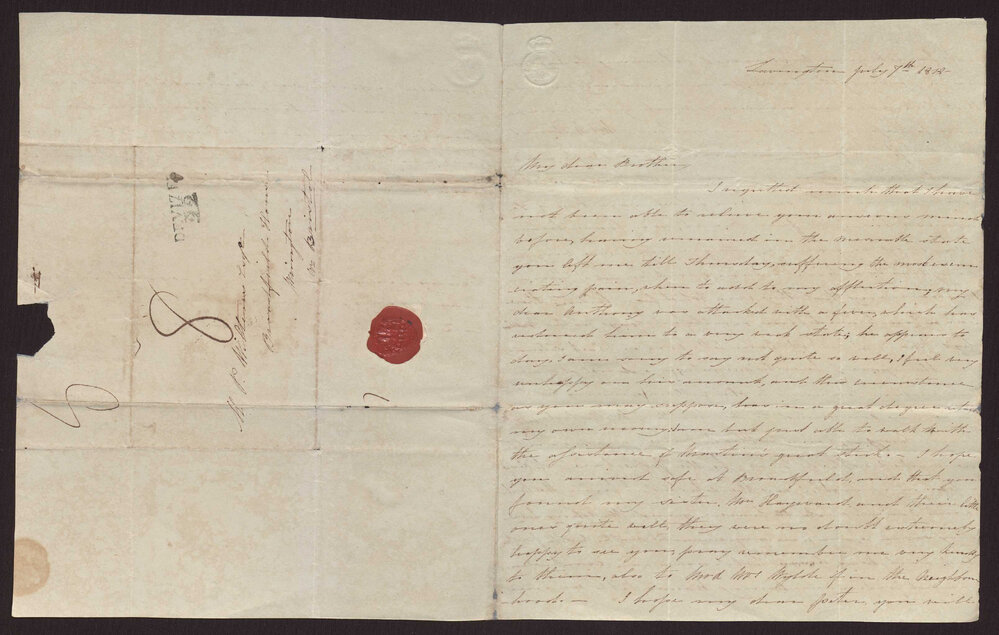 Lavington July 7th 1818
My dear Brother,
I regretted much that I have
not been able to relieve your anxious mind
before, having remained in the miserable state
you left me till Thursday, suffering the most excru
ciating pain, when to add to my afflictions, my
dear Anthony was attacked with a fever, which has
reduced him to a very weak state; he appears to
day I am sorry to say not quite so well, I feel very
unhappy on his account, and this circumstance
as you may suppose, has in a great degree
my own recovery, am but just able to walk with
the assistance of great stick - I hope
you arrived safe at Broadfield, and that you
found my sister, Mr Hayward and their little
ones quite well, they were no doubt extremely
happy to see you, pray remember me very kindly
to them, also to Mr & Mrs Wylde if in the Neighbour
hood - I hope my dear Peter, you will
Mr P. Williams
Broadfield
Wrington
Nr Bristol
DEVIZES
8